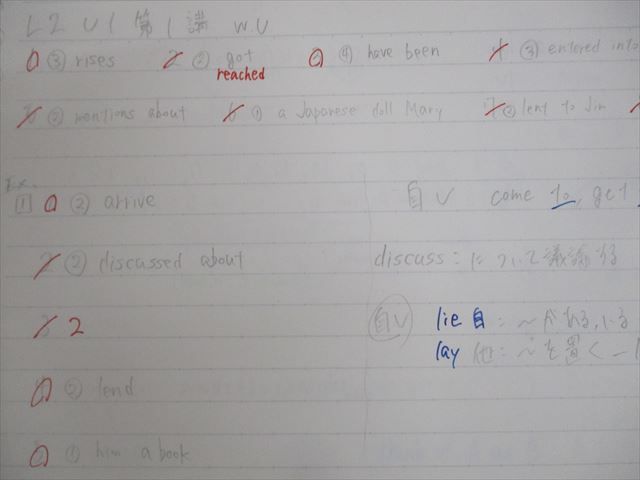 L2 U1 第1講 W.U
③ rises ② got ④ have been ③ entered into
reached
② mentions about ① a Japanese doll Mary ② lent to Jim
Ex.
1 ② arrive 自V come to, get
② discussed about discuss: について議論する
2 自V lie 自:〜がある,いる
lay 他:〜を置く
② lend
① him a book